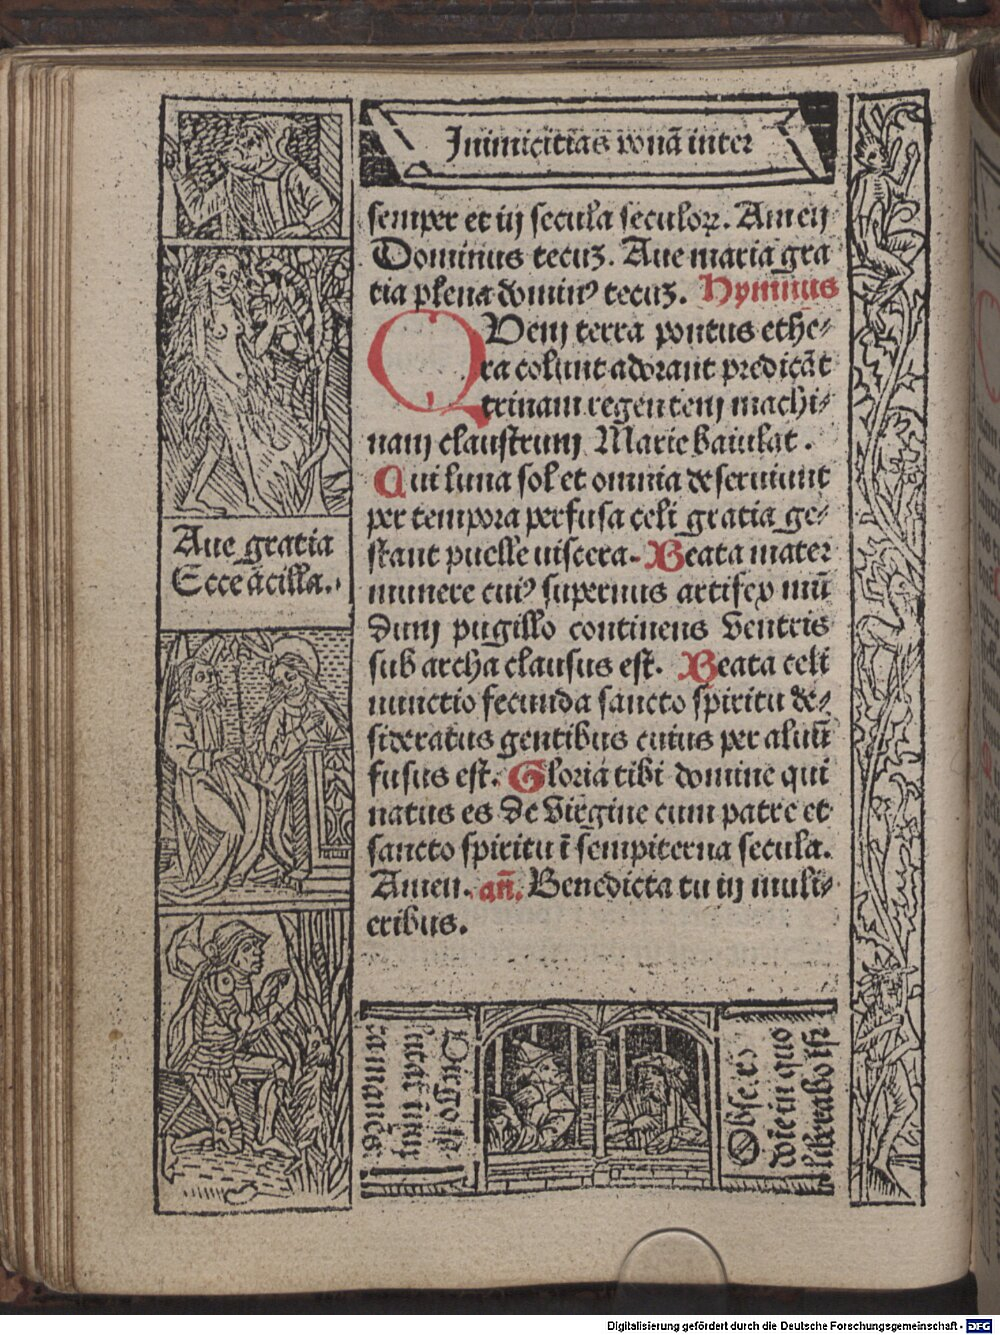 Inimicitias ponā inter
semper et in secula seculoꝝ. Amen
Dominus tecuꝫ. Aue maria gra
tia plena dominꝰ tecuꝫ. Hymnus
QVem terra pontus ethe⸗
ra colunt adorant predicāt
trinam regentem machi⸗
nam claustrum Marie baiulat.
Cui luna sol et omnia deseruiunt
per tempora perfusa celi gratia ge⸗
stant puelle uiscera. Beata mater
munere cuiꝰ supernus artifex mū
dum pugillo continens Ventris
sub archa clausus est. Beata celi
nunctio fecunda sancto spiritu de⸗
sideratus gentibus cuius per aluū
fusus est. Gloria tibi domine qui
natus es de Virgine cum patre et
sancto spiritu ī sempiterna secula.
Amen. añ. Benedicta tu in muli⸗
eribus.
Aue gratia
Ecce ācilla.
Uirgo
Obse. es
die in quo
liberabo
Digitalisierung gefördert durch die Deutsche Forschungsgemeinschaft - DFG